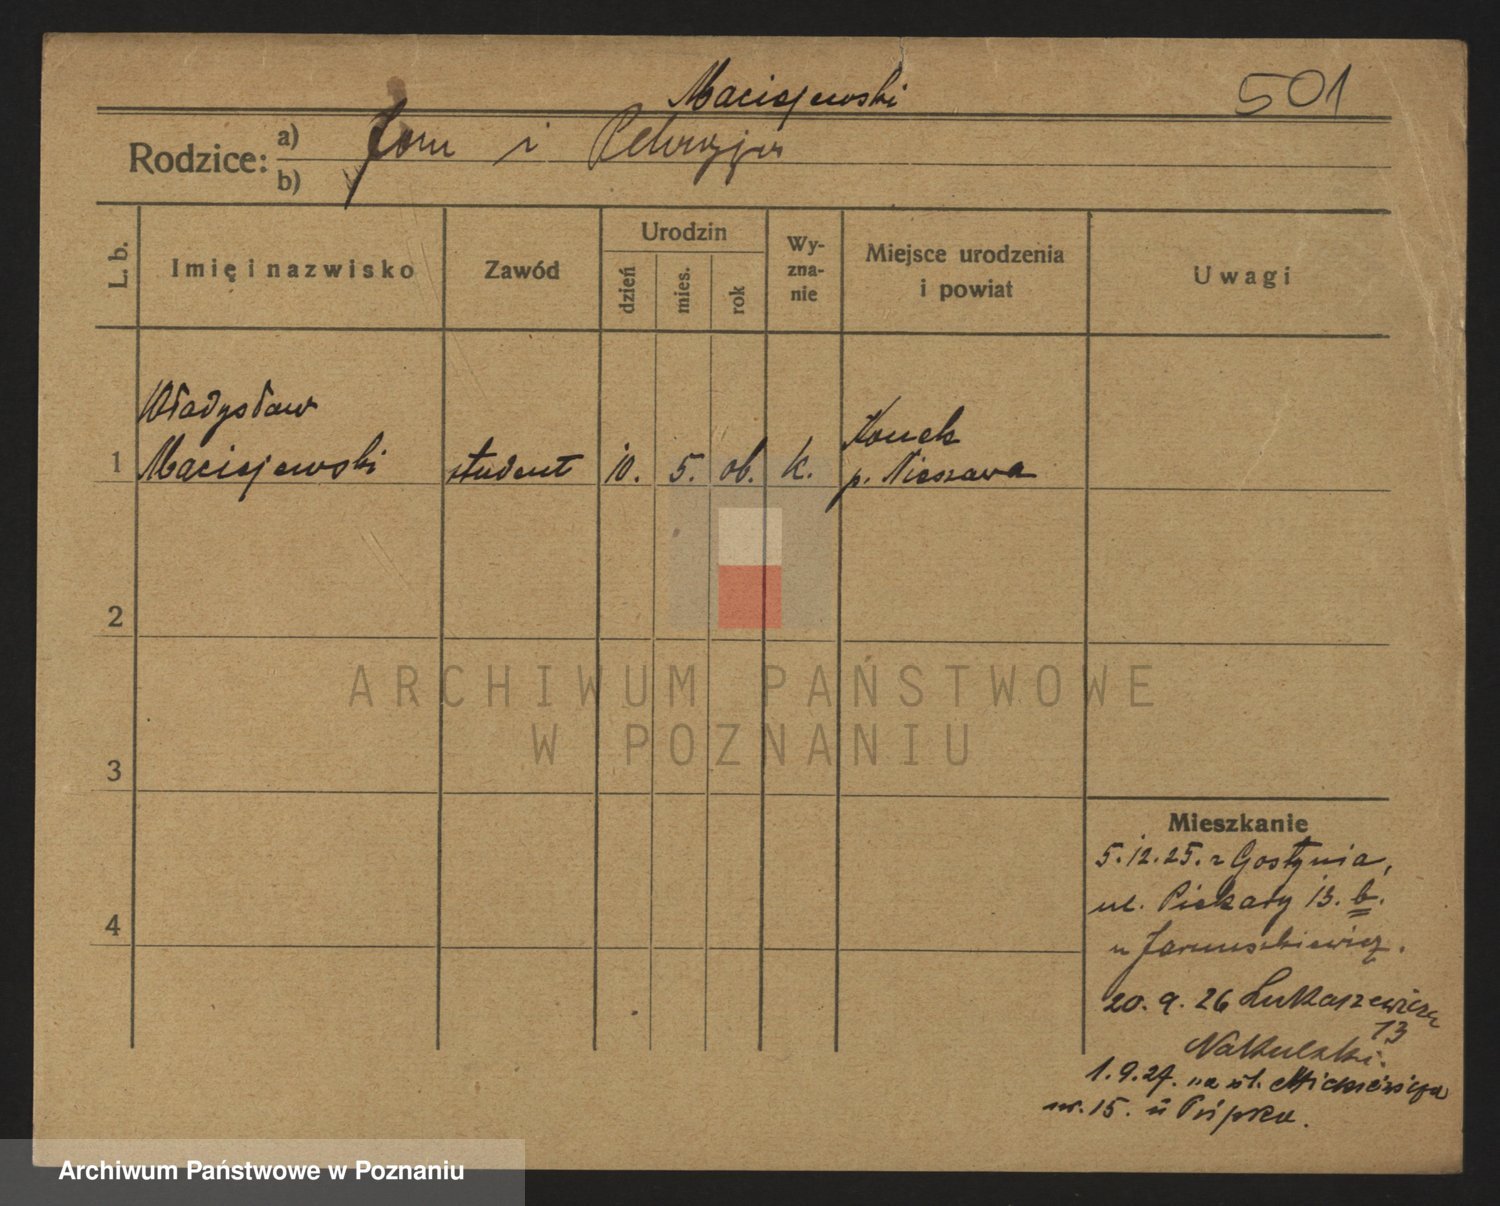 Maciejewski
501
Rodzice:
a) Jan i
b)
L. b.
Imię i nazwisko
Zawód
Urodzin
dzień
mies.
rok
Wy-
zna-
nie
Miejsce urodzenia
i powiat
Uwagi
Władysław
1 Maciejewski student 10. 5. 06. k. Konek
p. Nieszawa
2
3
4
Mieszkanie
5.12.25. z Gostynia,
ul. Piekary 13. b.
u Jarmuszkiewicz.
20. 9. 26 Łukaszewicza
13
1. 9. 27. na ul. Mickiewicza
nr. 15. u
ARCHIWUM PAŃSTWOWE
W POZNANIU
Archiwum Państwowe w Poznaniu